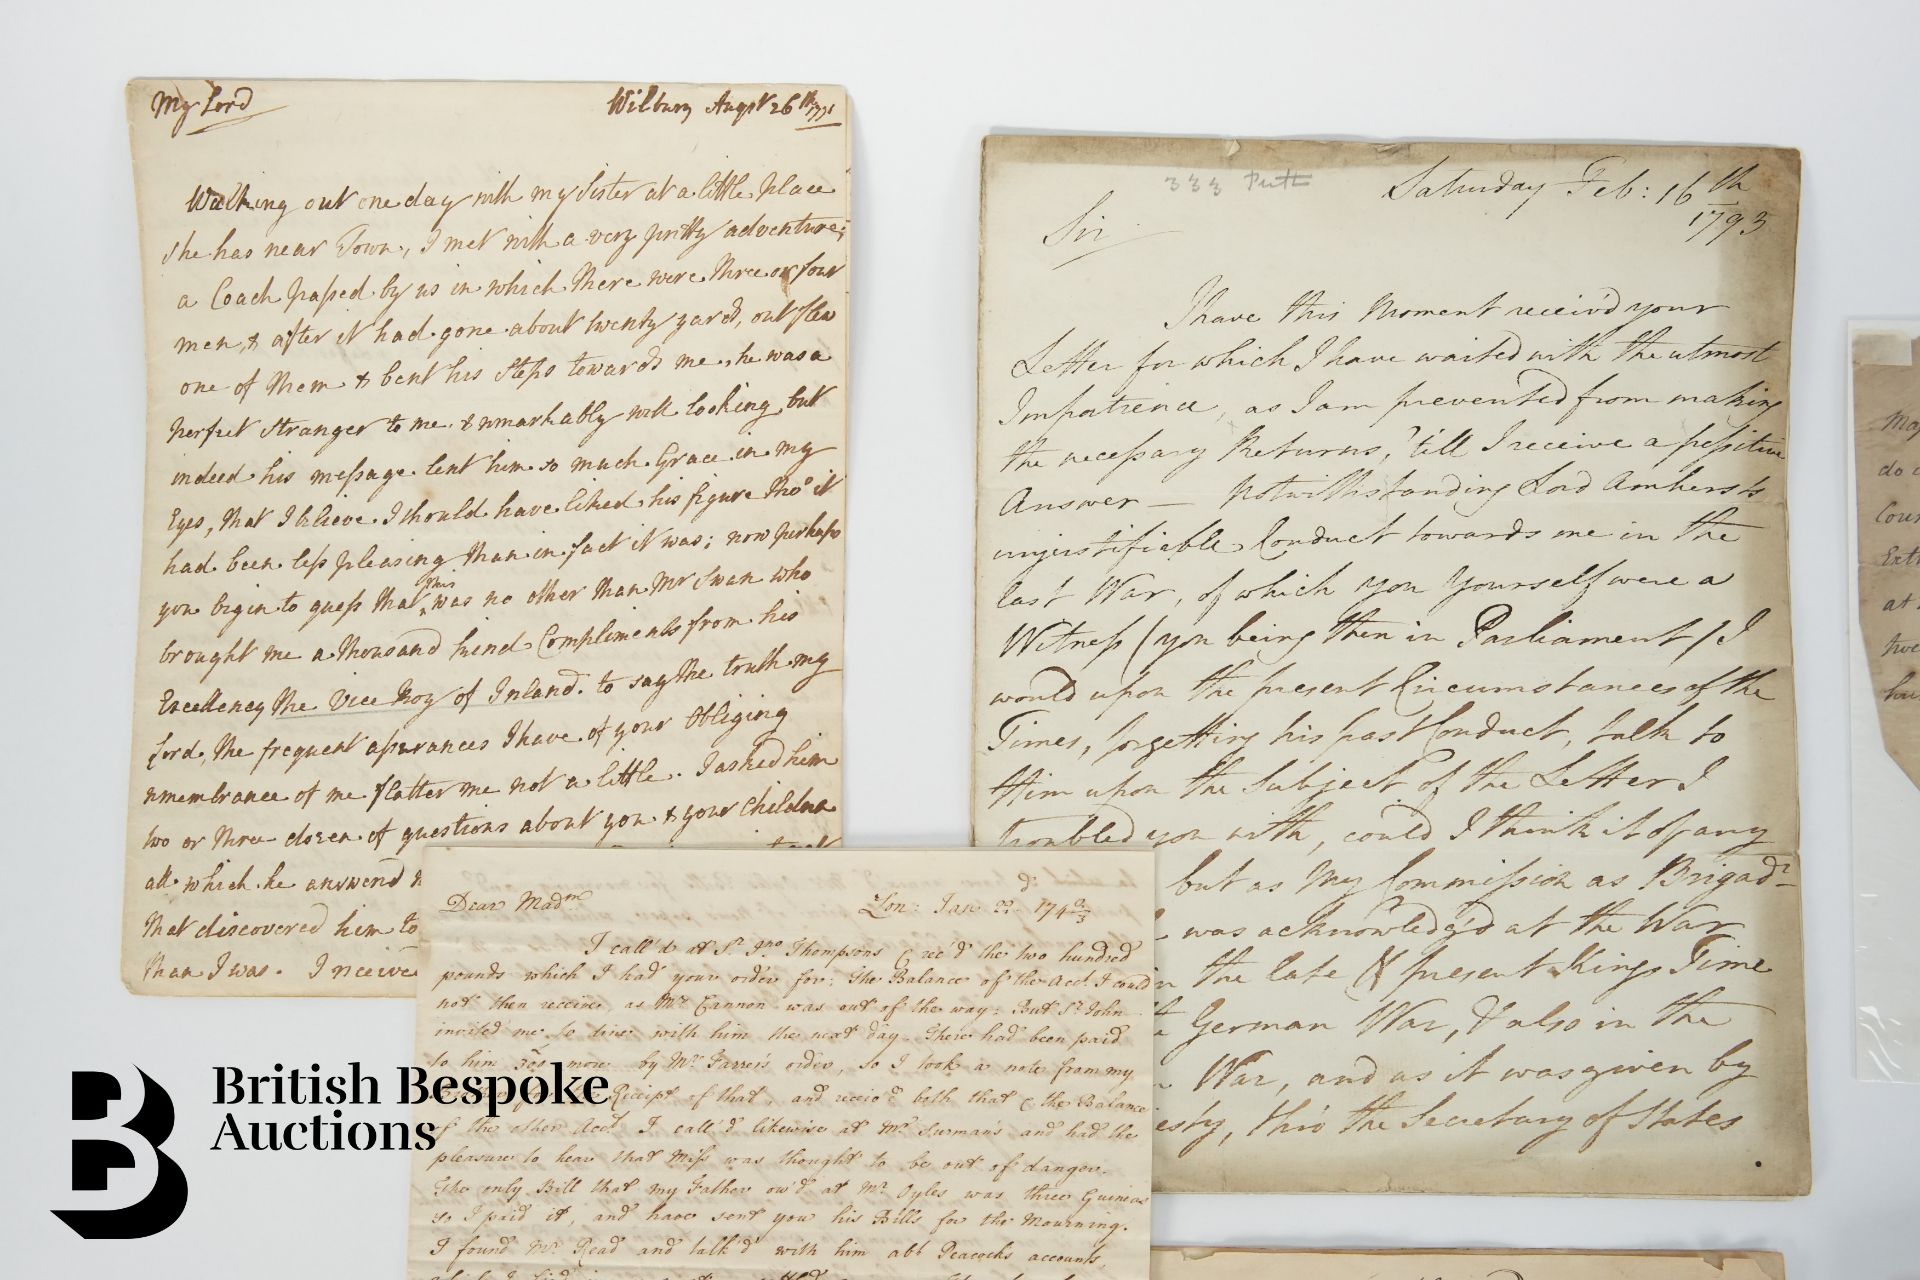 My Lord
Wilbury Augst 26th 1771
Walking out one day with my Sister at a little place
she has near Town, I met with a very pretty adventure;
a Coach passed by us in which there were three or four
men, & after it had gone about twenty yards, out flew
one of them & bent his Steps towards me, he was a
perfect Stranger to me & remarkably well looking but
indeed his message lent him so much Grace in my
Eyes, that I believe I should have liked his figure tho' it
had been less pleasing than in fact it was; now perhaps
you begin to guess that this was no other than Mr Swan who
brought me a thousand kind Compliments from his
Excellency the Vice Roy of Ireland. to say the truth my
Lord, the frequent assurances I have of your Obliging
remembrance of me flatter me not a little. I asked him
two or three dozen of questions about you & your Children
all which he answered
that discovered him to
than I was. I receive
333
Saturday Feb: 16th
1793
Sir
I have this Moment receiv'd your
Letter for which I have waited with the utmost
Impatience, as I am prevented from making
the necessary Returns, 'till I receive a possitive
Answer — Notwithstanding Lord Amherst's
unjustifiable Conduct towards me in the
last War, of which you Yourself were a
Witness (you being then in Parliament) I
would upon the present Circumstances of the
Times, forgetting his past Conduct, talk to
Him upon the Subject of the Letter I
troubled you with, could I think it of any
but as My Commission as Brigadr
was acknowledg'd at the War
in the late & present Kings Time
German War, & also in the
War, and as it was given by
esty, thro' the Secretary of States
Dear Madm
Lon: Jan 22d: 174 2/3
I call'd at Sr. Jno. Thompsons & rec'd the two hundred
pounds which I had your order for: The Balance of the Acct. I could
not then receive, as Mr. Cannon was out of the way: But Sr. John
invited me to dine with him the next day. There had been paid
to him 30£ more by Mr. Farrer's order, so I took a note from my
Receipt of that, and receiv'd both that & the Balance
of the other Acct. I call'd likewise at Mr. Surman's and had the
pleasure to hear that Miss was thought to be out of danger.
The only Bill that my Father ow'd at Mr. Oyles was three Guineas
so I paid it, and have sent you his Bills for the Mourning.
I found Mr. Read and talk'd with him abt Peacock's accounts,
do
Cour
at
British Bespoke
Auctions